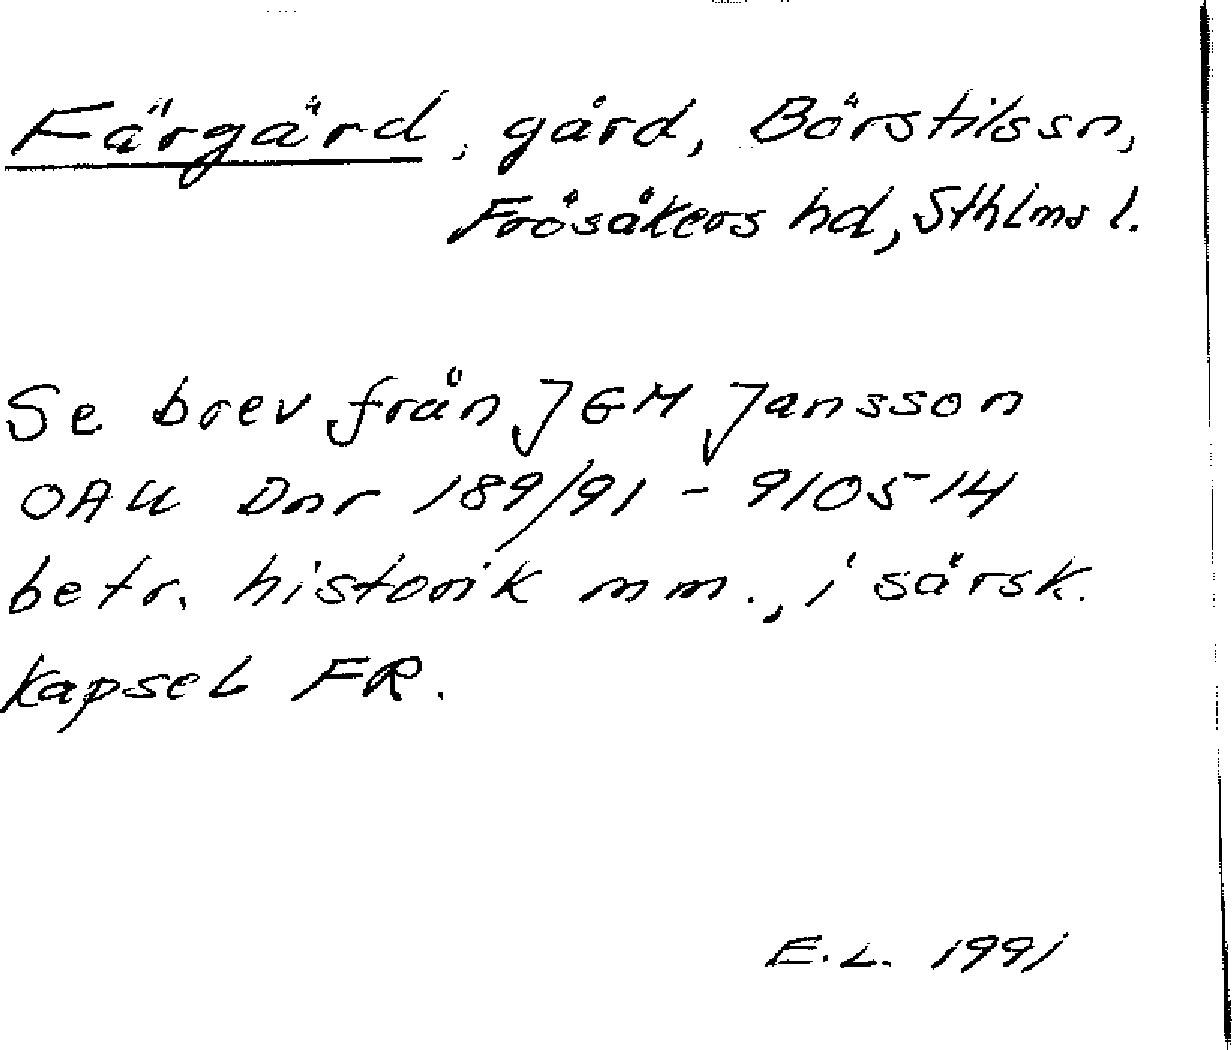 Färgärd, gård, Börstilssn,
Frösåkers hd, Sthlms l.
Se brev från J G M Jansson
OAU Dnr 189/91 - 910514
betr. historik mm., i särsk.
kapsel FR.
E.L. 1991